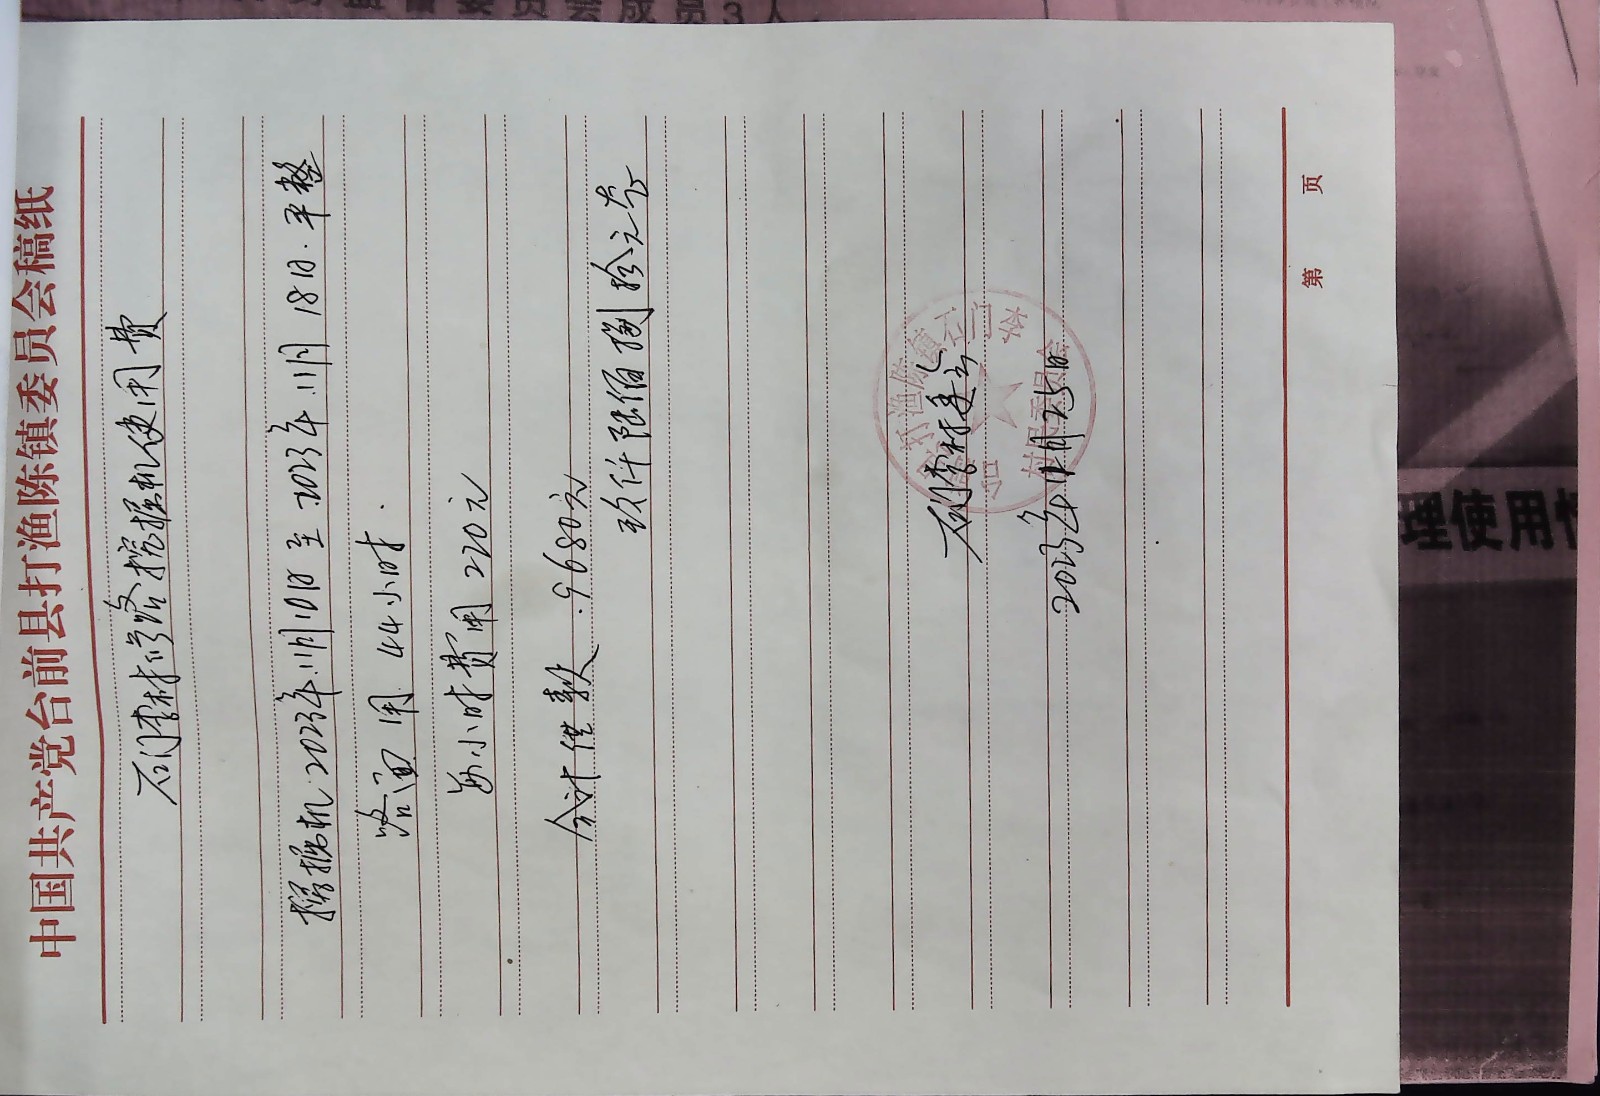 中国共产党台前县打渔陈镇委员会稿纸
石门李村修路挖掘机使用费
挖掘机2023年11月10日至2023年11月18日.平整
路面用44小时.
每小时费用220元
合计佳款.9680元
玖仟陆佰捌拾元李
石门李村委会
2023年11月25日
打渔陈镇石门李
村民委员会
第 页
理使用情
委员会成员3人